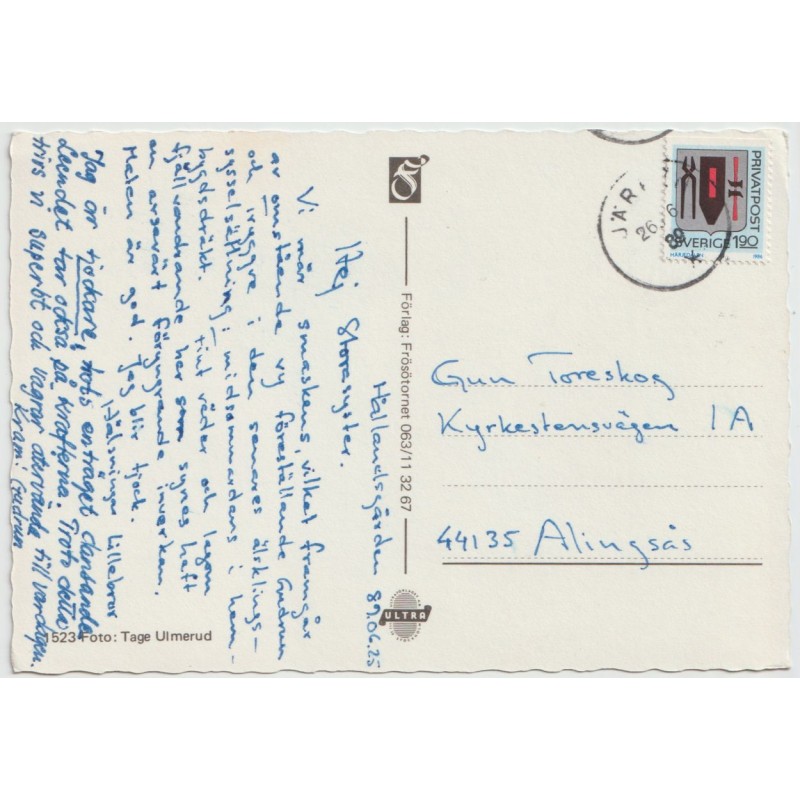 Hållandsgården 89.06.25
Hej Storasyster.
Vi mår smaskens, vilket framgår
av omstående vy föreställande Gudrun
och Yngve i den senares älsklings-
sysselsättning; midsommardans i hem-
bygdsdräkt. Fint väder och lagom
fjällvandrande har som synes haft
en oerhört föryngrande inverkan.
Maten är god. Jag blir tjock.
Hälsningar Lillebror
Jag är tjockare, trots enträget dansande
Leendet tar också på krafterna. Trots detta
trivs vi superbt och vägrar återvända till vardagen.
Kram! Gudrun
1523 Foto: Tage Ulmerud
Förlag: Frösötornet 063/11 32 67
ULTRA
PRIVATPOST
SVERIGE 190
JÄR
26 6 89
Gun Toreskog
Kyrkestensvägen 1A
44135 Alingsås